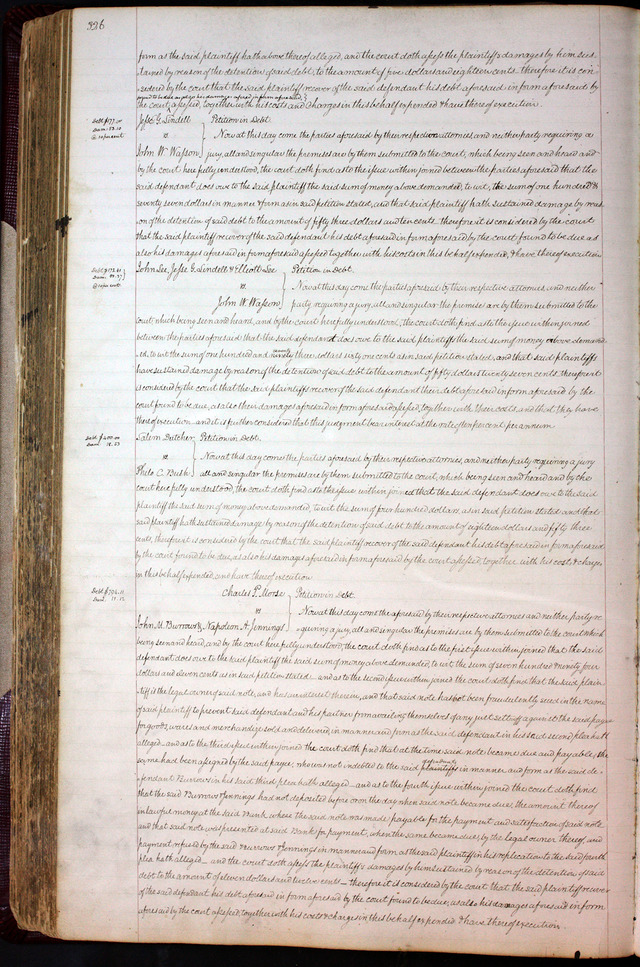 326
form as the said plaintiff hath above thereof alleged, and the court doth assess the plaintiffs damages by him sus-
tained by reason of the detention of said debt, to the amount of five dollars and eighteen cents. therefore it is con-
sidered by the court that the said plaintiff recover of the said defendant his debt aforesaid in form aforesaid by
the court assessed, together with his costs and charges in this behalf expended & have thereof execution.
Debt $177.00
Dam: 53.10
@ 10 per cent
Jesse G. Lindell Petition in Debt.
vs Now at this day come the parties aforesaid by their respective attorneys and neither party requiring a
John W. Wasson jury, all and singular the premises are by them submitted to the court, which being seen and heard and
by the court here fully understood, the court doth find as to the issue within joined between the parties aforesaid that the
said defendant does owe to the said plaintiff the said sum of money above demanded, to wit, the sum of one hundred &
seventy seven dollars in manner & form as in said petition stated, and that said plaintiff hath sustained damage by reas-
on of the detention of said debt to the amount of fifty three dollars and ten cents. therefore it is considered by the court
that the said plaintiff recover of the said defendant his debt aforesaid in form aforesaid by the court found to be due as
also his damages aforesaid in form aforesaid assessed together with his costs in this behalf expended, & have thereof execution
John Lee, Jesse G. Lindell & Elliott Lee Petition in Debt.
vs Now at this day come the parties aforesaid by their respective attornies, and neither
John W. Wasson party requiring a jury, all and singular the premises are by them submitted to the
court, which being seen and heard, and by the court here fully understood, the court doth find as to the issue within joined
between the parties aforesaid that the said defendant does owe to the said plaintiffs the said sum of money above demand-
ed, to wit the sum of one hundred and ninety three dollars sixty one cents as in said petition stated, and that said plaintiffs
have sustained damage by reason of the detention of said debt to the amount of fifty dollars twenty seven cents. therefore it
is considered by the court that the said plaintiffs recover of the said defendant their debt aforesaid in form aforesaid by the
court found to be due, as also their damages aforesaid in form aforesaid assessed, together with their costs, and that they have
thereof execution. and it is further considered that this judgment bear interest at the rate of ten per cent per annum
Debt $400.00
Dam: 18.53
Salem Dutcher Petition in Debt.
vs Now at this day come the parties aforesaid by their respective attornies, and neither party requiring a jury
Philo C. Bush all and singular the premises are by them submitted to the court, which being seen and heard and by the
court here fully understood, the court doth find as to the issue within joined that the said defendant does owe to the said
plaintiff the said sum of money above demanded, to wit the sum of four hundred dollars, as in said petition stated and that
said plaintiff hath sustained damage by reason of the detention of said debt to the amount of eighteen dollars and fifty three
cents, therefore it is considered by the court that the said plaintiff recover of the said defendant his debt aforesaid in form aforesaid
by the court found to be due, as also his damages aforesaid in form aforesaid by the court assessed, together with his costs & charges
in this behalf expended, and have thereof execution.
Debt $794.11
Dam: 11.12
Charles P. Morse Petition in Debt.
vs Now at this day come the aforesaid by their respective attornies and neither party re-
John M. Burrows & Napoleon A. Jennings quiring a jury, all and singular the premises are by them submitted to the court which
being seen and heard, and by the court here fully understood, the court doth find as to the first issue within joined that the said
defendant does owe to the said plaintiff the said sum of money above demanded, to wit the sum of seven hundred & ninety four
dollars and eleven cents as in said petition stated—and as to the second issue within joined the court doth find that the said plain-
tiff is the legal owner of said note, and has an interest therein, and that said note has not been fraudulently sued in the name
of said plaintiff to prevent said defendant and his partner from availing themselves of any just set off against the said payee
for goods, wares and merchandize sold and delivered, in manner and form as the said defendant in his said second plea hath
alleged—and as to the third issue within joined the court doth find that at the time said note became due and payable, the
same had been assigned by the said payee, who was not indebted to the said defendants in manner and form as the said de-
fendant Burrows in his said third plea hath alleged—and as to the fourth issue within joined the court doth find
that the said Burrows & Jennings had not deposited before or on the day when said note became due, the amount thereof
in lawful money at the said Bank where the said note was made payable for the payment and satisfaction of said note
and that said note was presented at said Bank for payment, when the same became due, by the legal owner thereof, and
payment refused by the said Burrows & Jennings in manner and form as the said plaintiff in his replication to the said fourth
plea hath alleged—and the court doth assess the plaintiffs damages by him sustained by reason of the detention of said
debt to the amount of eleven dollars and twelve cents—therefore it is considered by the court that the said plaintiff recover
of the said defendant his debt aforesaid in form aforesaid by the court found to be due, as also his damages aforesaid in form
aforesaid by the court assessed, together with his costs & charges in this behalf expended & have thereof execution.